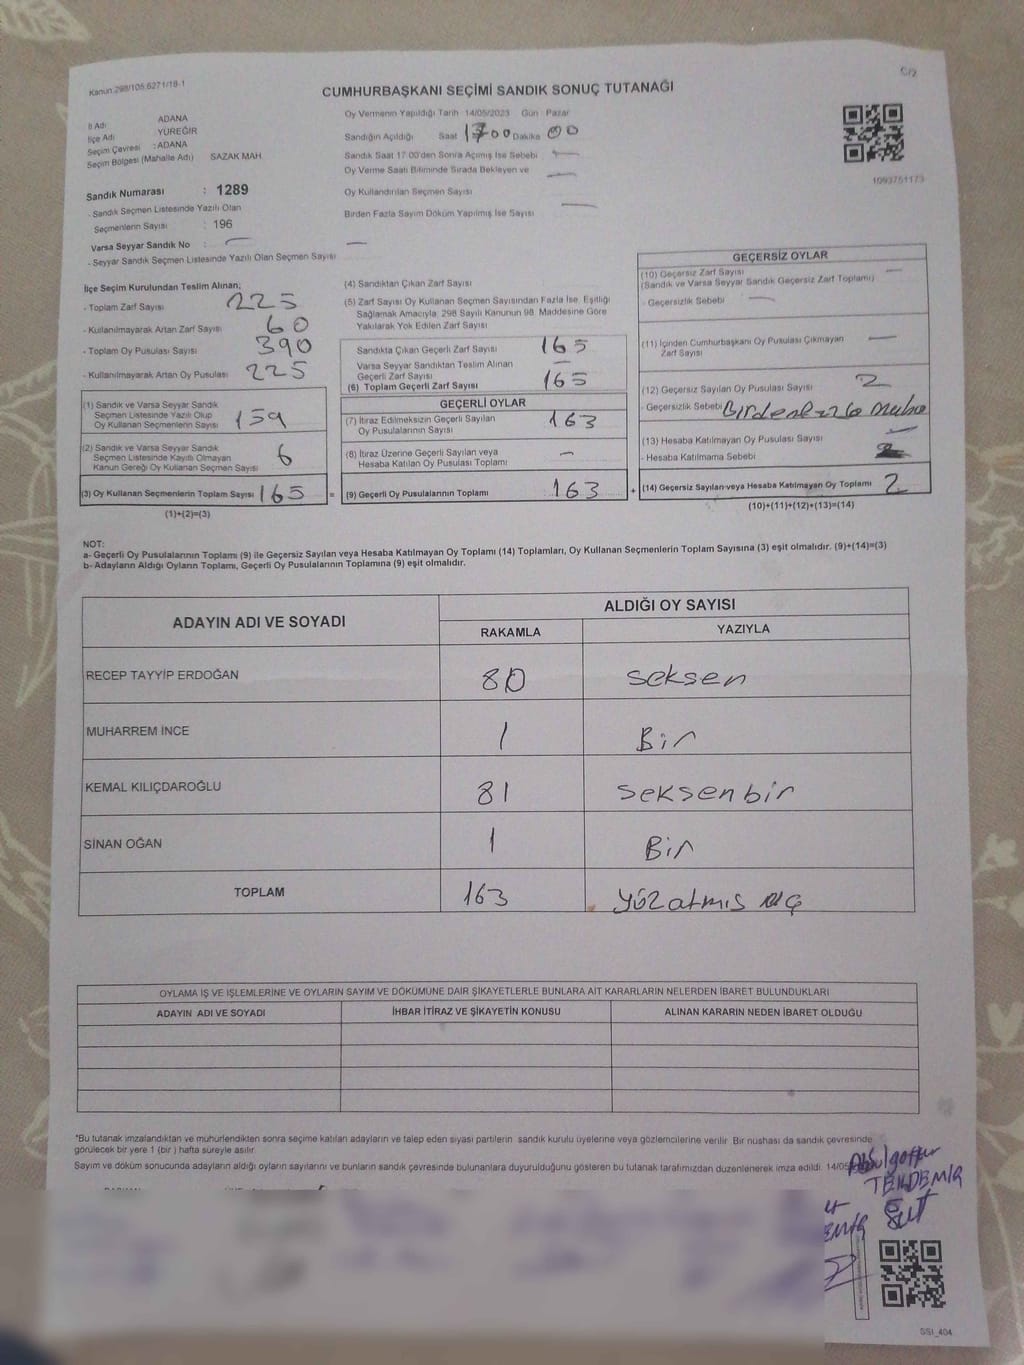 Kanun 298/105,6271/18-1
CUMHURBAŞKANI SEÇİMİ SANDIK SONUÇ TUTANAĞI
C/2
İl Adı ADANA
İlçe Adı YÜREĞİR
Seçim Çevresi : ADANA
Seçim Bölgesi (Mahalle Adı) SAZAK MAH.
Sandık Numarası : 1289
- Sandık Seçmen Listesinde Yazılı Olan
Seçmenlerin Sayısı : 196
Varsa Seyyar Sandık No : —
- Seyyar Sandık Seçmen Listesinde Yazılı Olan Seçmen Sayısı —
Oy Vermenin Yapıldığı Tarih 14/05/2023 Gün Pazar
Sandığın Açıldığı Saat 1700 Dakika 00
Sandık Saat 17:00'den Sonra Açılmış İse Sebebi —
Oy Verme Saati Bitiminde Sırada Bekleyen ve —
Oy Kullandırılan Seçmen Sayısı
Birden Fazla Sayım Döküm Yapılmış İse Sayısı —
1093751173
İlçe Seçim Kurulundan Teslim Alınan;
- Toplam Zarf Sayısı 225
- Kullanılmayarak Artan Zarf Sayısı 60
- Toplam Oy Pusulası Sayısı 390
- Kullanılmayarak Artan Oy Pusulası 225
(1) Sandık ve Varsa Seyyar Sandık
Seçmen Listesinde Yazılı Olup
Oy Kullanan Seçmenlerin Sayısı 159
(2) Sandık ve Varsa Seyyar Sandık
Seçmen Listesinde Kayıtlı Olmayan
Kanun Gereği Oy Kullanan Seçmen Sayısı 6
(3) Oy Kullanan Seçmenlerin Toplam Sayısı 165
(1)+(2)=(3)
(4) Sandıktan Çıkan Zarf Sayısı
(5) Zarf Sayısı Oy Kullanan Seçmen Sayısından Fazla İse, Eşitliği
Sağlamak Amacıyla, 298 Sayılı Kanunun 98. Maddesine Göre
Yakılarak Yok Edilen Zarf Sayısı
Sandıkta Çıkan Geçerli Zarf Sayısı 165
Varsa Seyyar Sandıktan Teslim Alınan —
Geçerli Zarf Sayısı
(6) Toplam Geçerli Zarf Sayısı 165
GEÇERLİ OYLAR
(7) İtiraz Edilmeksizin Geçerli Sayılan
Oy Pusulalarının Sayısı 163
(8) İtiraz Üzerine Geçerli Sayılan veya
Hesaba Katılan Oy Pusulası Toplamı —
= (9) Geçerli Oy Pusulalarının Toplamı 163
GEÇERSİZ OYLAR
(10) Geçersiz Zarf Sayısı —
(Sandık ve Varsa Seyyar Sandık Geçersiz Zarf Toplamı)
- Geçersizlik Sebebi —
(11) İçinden Cumhurbaşkanı Oy Pusulası Çıkmayan —
Zarf Sayısı
(12) Geçersiz Sayılan Oy Pusulası Sayısı 2
- Geçersizlik Sebebi
(13) Hesaba Katılmayan Oy Pusulası Sayısı —
- Hesaba Katılmama Sebebi
+ (14) Geçersiz Sayılan veya Hesaba Katılmayan Oy Toplamı 2
(10)+(11)+(12)+(13)=(14)
NOT:
a- Geçerli Oy Pusulalarının Toplamı (9) ile Geçersiz Sayılan veya Hesaba Katılmayan Oy Toplamı (14) Toplamları, Oy Kullanan Seçmenlerin Toplam Sayısına (3) eşit olmalıdır. (9)+(14)=(3)
b- Adayların Aldığı Oyların Toplamı, Geçerli Oy Pusulalarının Toplamına (9) eşit olmalıdır.
ADAYIN ADI VE SOYADI ALDIĞI OY SAYISI
RAKAMLA YAZIYLA
RECEP TAYYİP ERDOĞAN 80 seksen
MUHARREM İNCE 1 Bir
KEMAL KILIÇDAROĞLU 81 seksenbir
SİNAN OĞAN 1 Bir
TOPLAM 163 yüzatmış üç
OYLAMA İŞ VE İŞLEMLERİNE VE OYLARIN SAYIM VE DÖKÜMÜNE DAİR ŞİKAYETLERLE BUNLARA AİT KARARLARIN NELERDEN İBARET BULUNDUKLARI
ADAYIN ADI VE SOYADI İHBAR İTİRAZ VE ŞİKAYETİN KONUSU ALINAN KARARIN NEDEN İBARET OLDUĞU
*Bu tutanak imzalandıktan ve mühürlendikten sonra seçime katılan adayların ve talep eden siyasi partilerin sandık kurulu üyelerine veya gözlemcilerine verilir. Bir nüshası da sandık çevresinde
görülecek bir yere 1 (bir) hafta süreyle asılır.
Sayım ve döküm sonucunda adayların aldığı oyların sayılarını ve bunların sandık çevresinde bulunanlara duyurulduğunu gösteren bu tutanak tarafımızdan düzenlenerek imza edildi. 14/05
TEKDEMİR
SSI_404